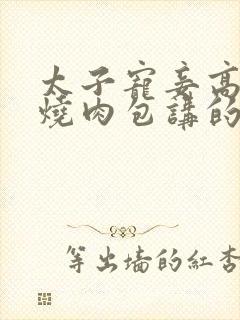 太子寵妾高
燒肉包講的
等出墻的紅杏